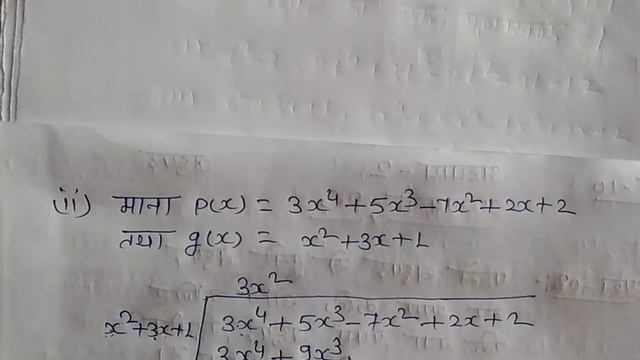 (ii) माना p(x) = 3x⁴+5x³-7x²+2x+2
तथा g(x) = x²+3x+1
3x²
x²+3x+1 3x⁴+5x³-7x²+2x+2
3x⁴+9x³